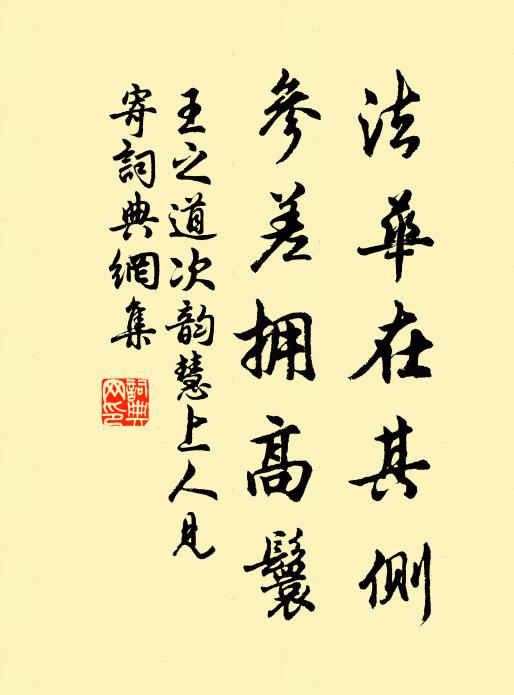 法華在其側
參差拥高鬟
王之道次韵慧上人見
寄詞典網集
詞典网印